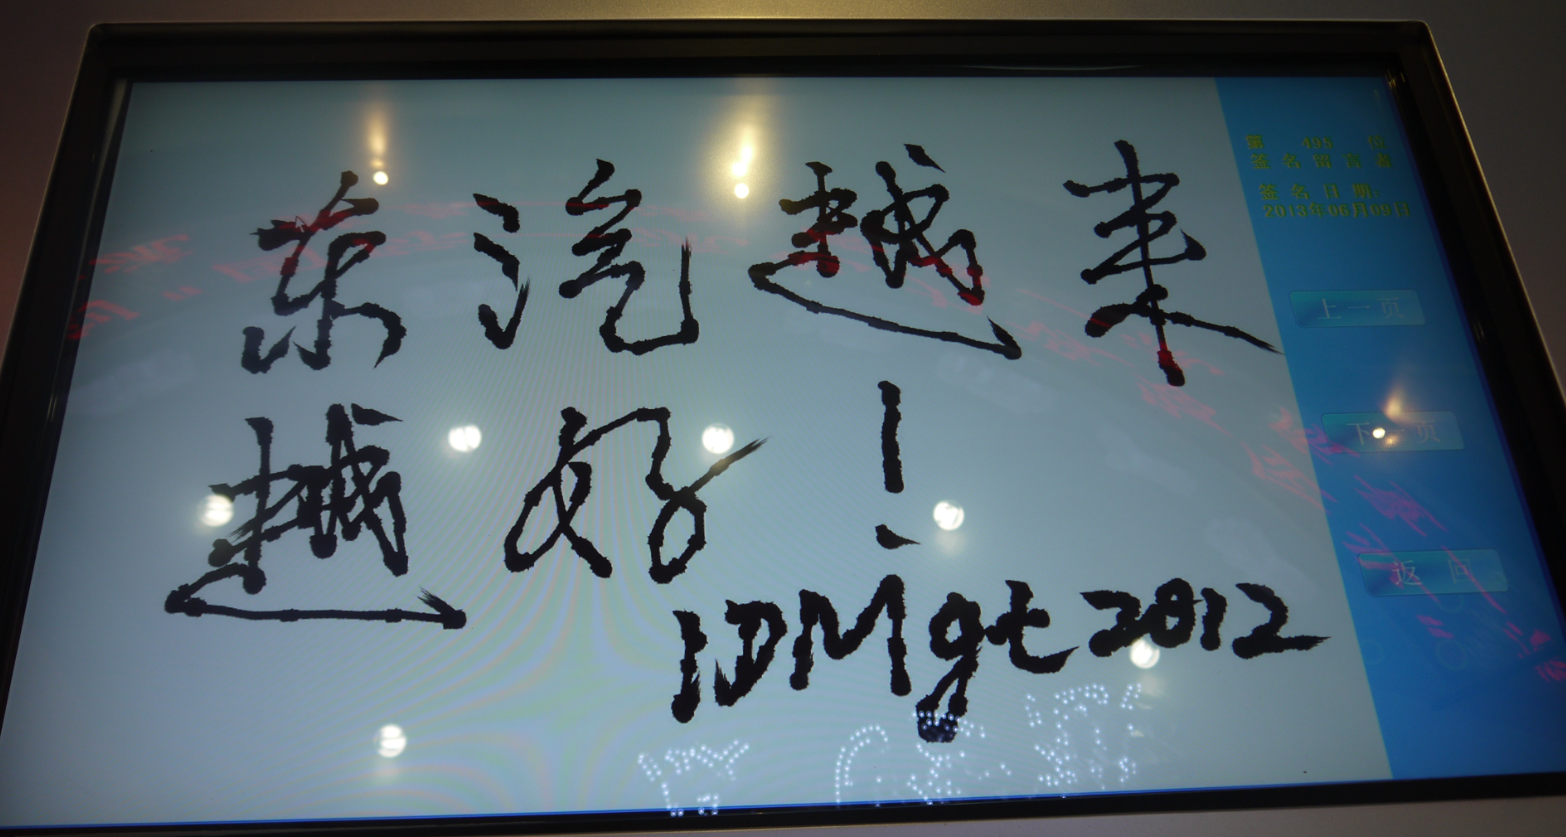 东汽越来
越好！
IDMgt2012
第 495 位
签名留言者
签名日期：
2013年06月09日
上一页
下一页
返回